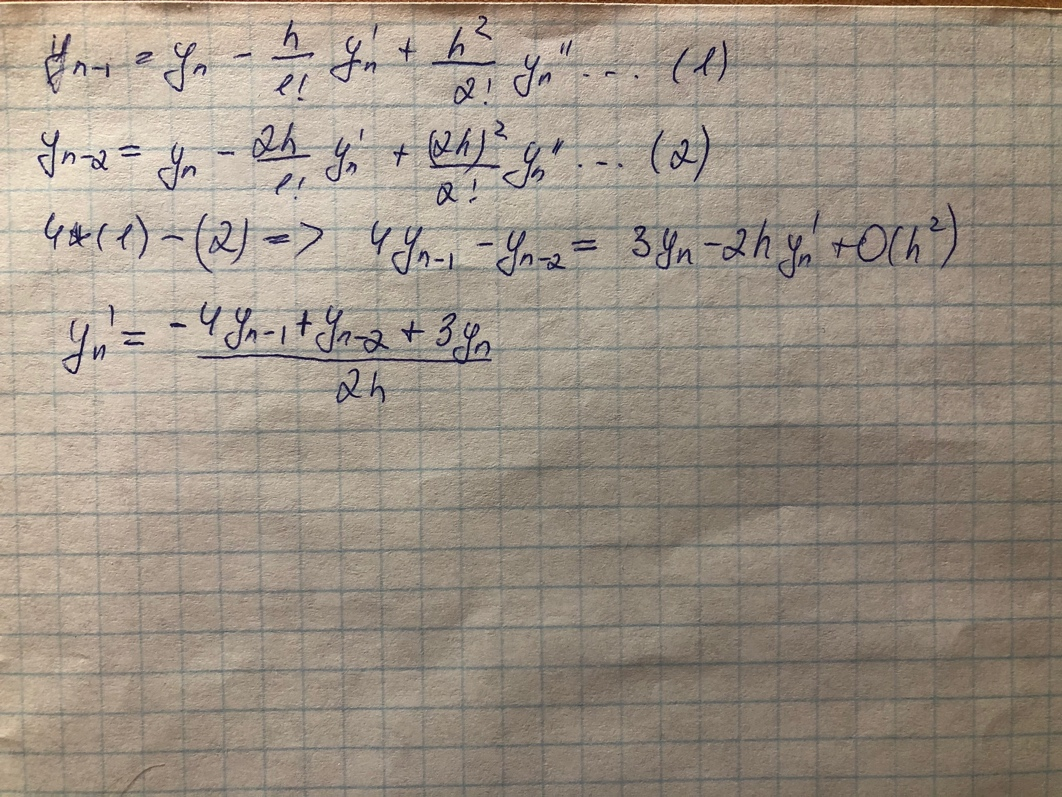 y_{n-1} = y_n - \frac{h}{1!} y_n' + \frac{h^2}{2!} y_n'' ... (1)
y_{n-2} = y_n - \frac{2h}{1!} y_n' + \frac{(2h)^2}{2!} y_n'' ... (2)
4*(1) - (2) => 4y_{n-1} - y_{n-2} = 3y_n - 2h y_n' + O(h^2)
y_n' = \frac{-4y_{n-1} + y_{n-2} + 3y_n}{2h}